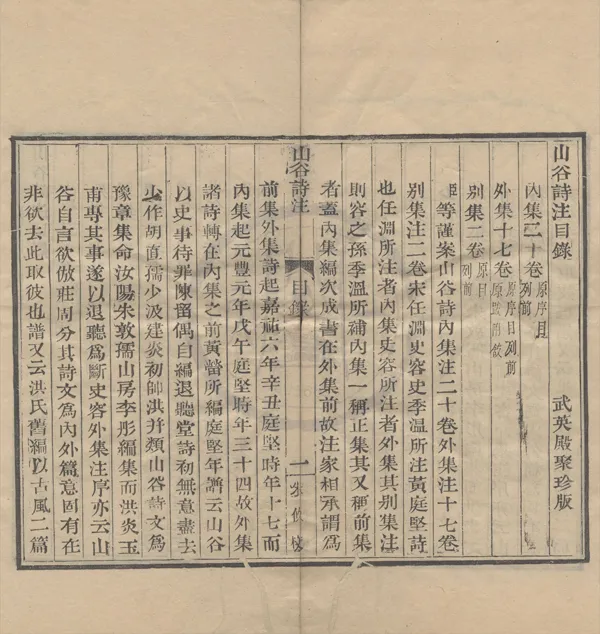 山谷詩注目錄
武英殿聚珍版
內集二十卷 原序目
外集十七卷 原序目列前
別集二卷 原目列前
臣等謹案山谷詩內集注二十卷外集注十七卷
別集注二卷宋任淵史容史季溫所注黃庭堅詩
也任淵所注者內集史容所注者外集其別集注
則容之孫季溫所補內集一稱正集其又稱前集
者蓋內集編次成書在外集前故注家相承謂爲
前集外集詩起嘉祐六年辛丑庭堅時年十七而
山谷詩注 目錄 一
內集起元豐元年戊午庭堅時年三十四故外集
諸詩轉在內集之前黃㽦所編庭堅年譜云山谷
以史事待罪陳留偶自編退聽堂詩初無意盡去
少作胡直孺少汲建炎初帥洪并類山谷詩文爲
豫章集命汝陽朱敦孺山房李彤編集而洪炎玉
甫專其事遂以退聽爲斷史容外集注序亦云山
谷自言欲倣莊周分其詩文爲內外篇意固有在
非欲去此取彼也譜又云洪氏舊編以古風二篇